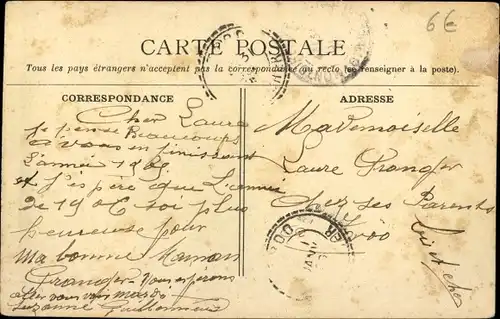 6€
CARTE POSTALE
Tous les pays étrangers n'acceptent pas la correspondance au recto (se renseigner à la poste).
CORRESPONDANCE
Cher Laure
je pense Beaucoups
a vous en finissant
L'année 1905
et j'espère que L'année
de 1906 soi plus
heureuse pour
ma bonne Maman
vous espérons
aller vous voir mardi
Suzanne
ADRESSE
Mademoiselle
Laure
chez ses Parents